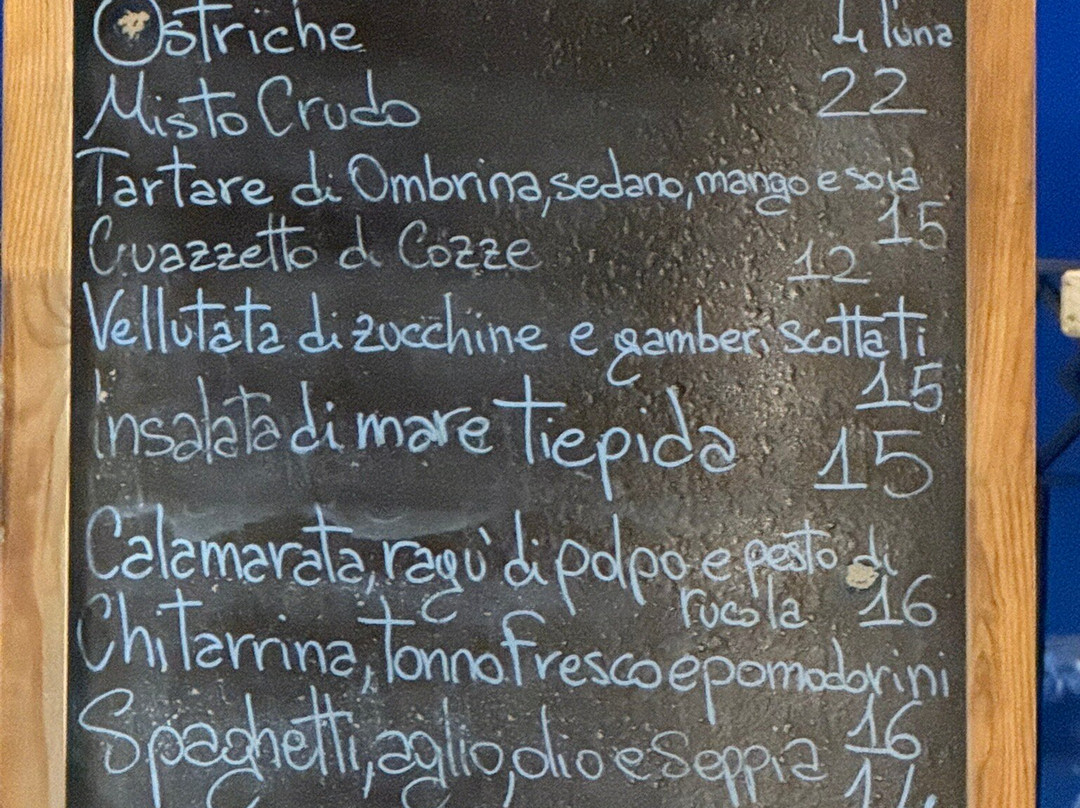 Ostriche 4 l'una
Misto Crudo 22
Tartare di Ombrina, sedano, mango e soia
15
Guazzetto di Cozze 12
Vellutata di zucchine e gamberi scottati
15
Insalata di mare Tiepida 15
Calamarata, ragù di polpo e pesto di
rucola 16
Chitarrina, Tonno fresco e pomodorini
16
Spaghetti, aglio, olio e Seppia